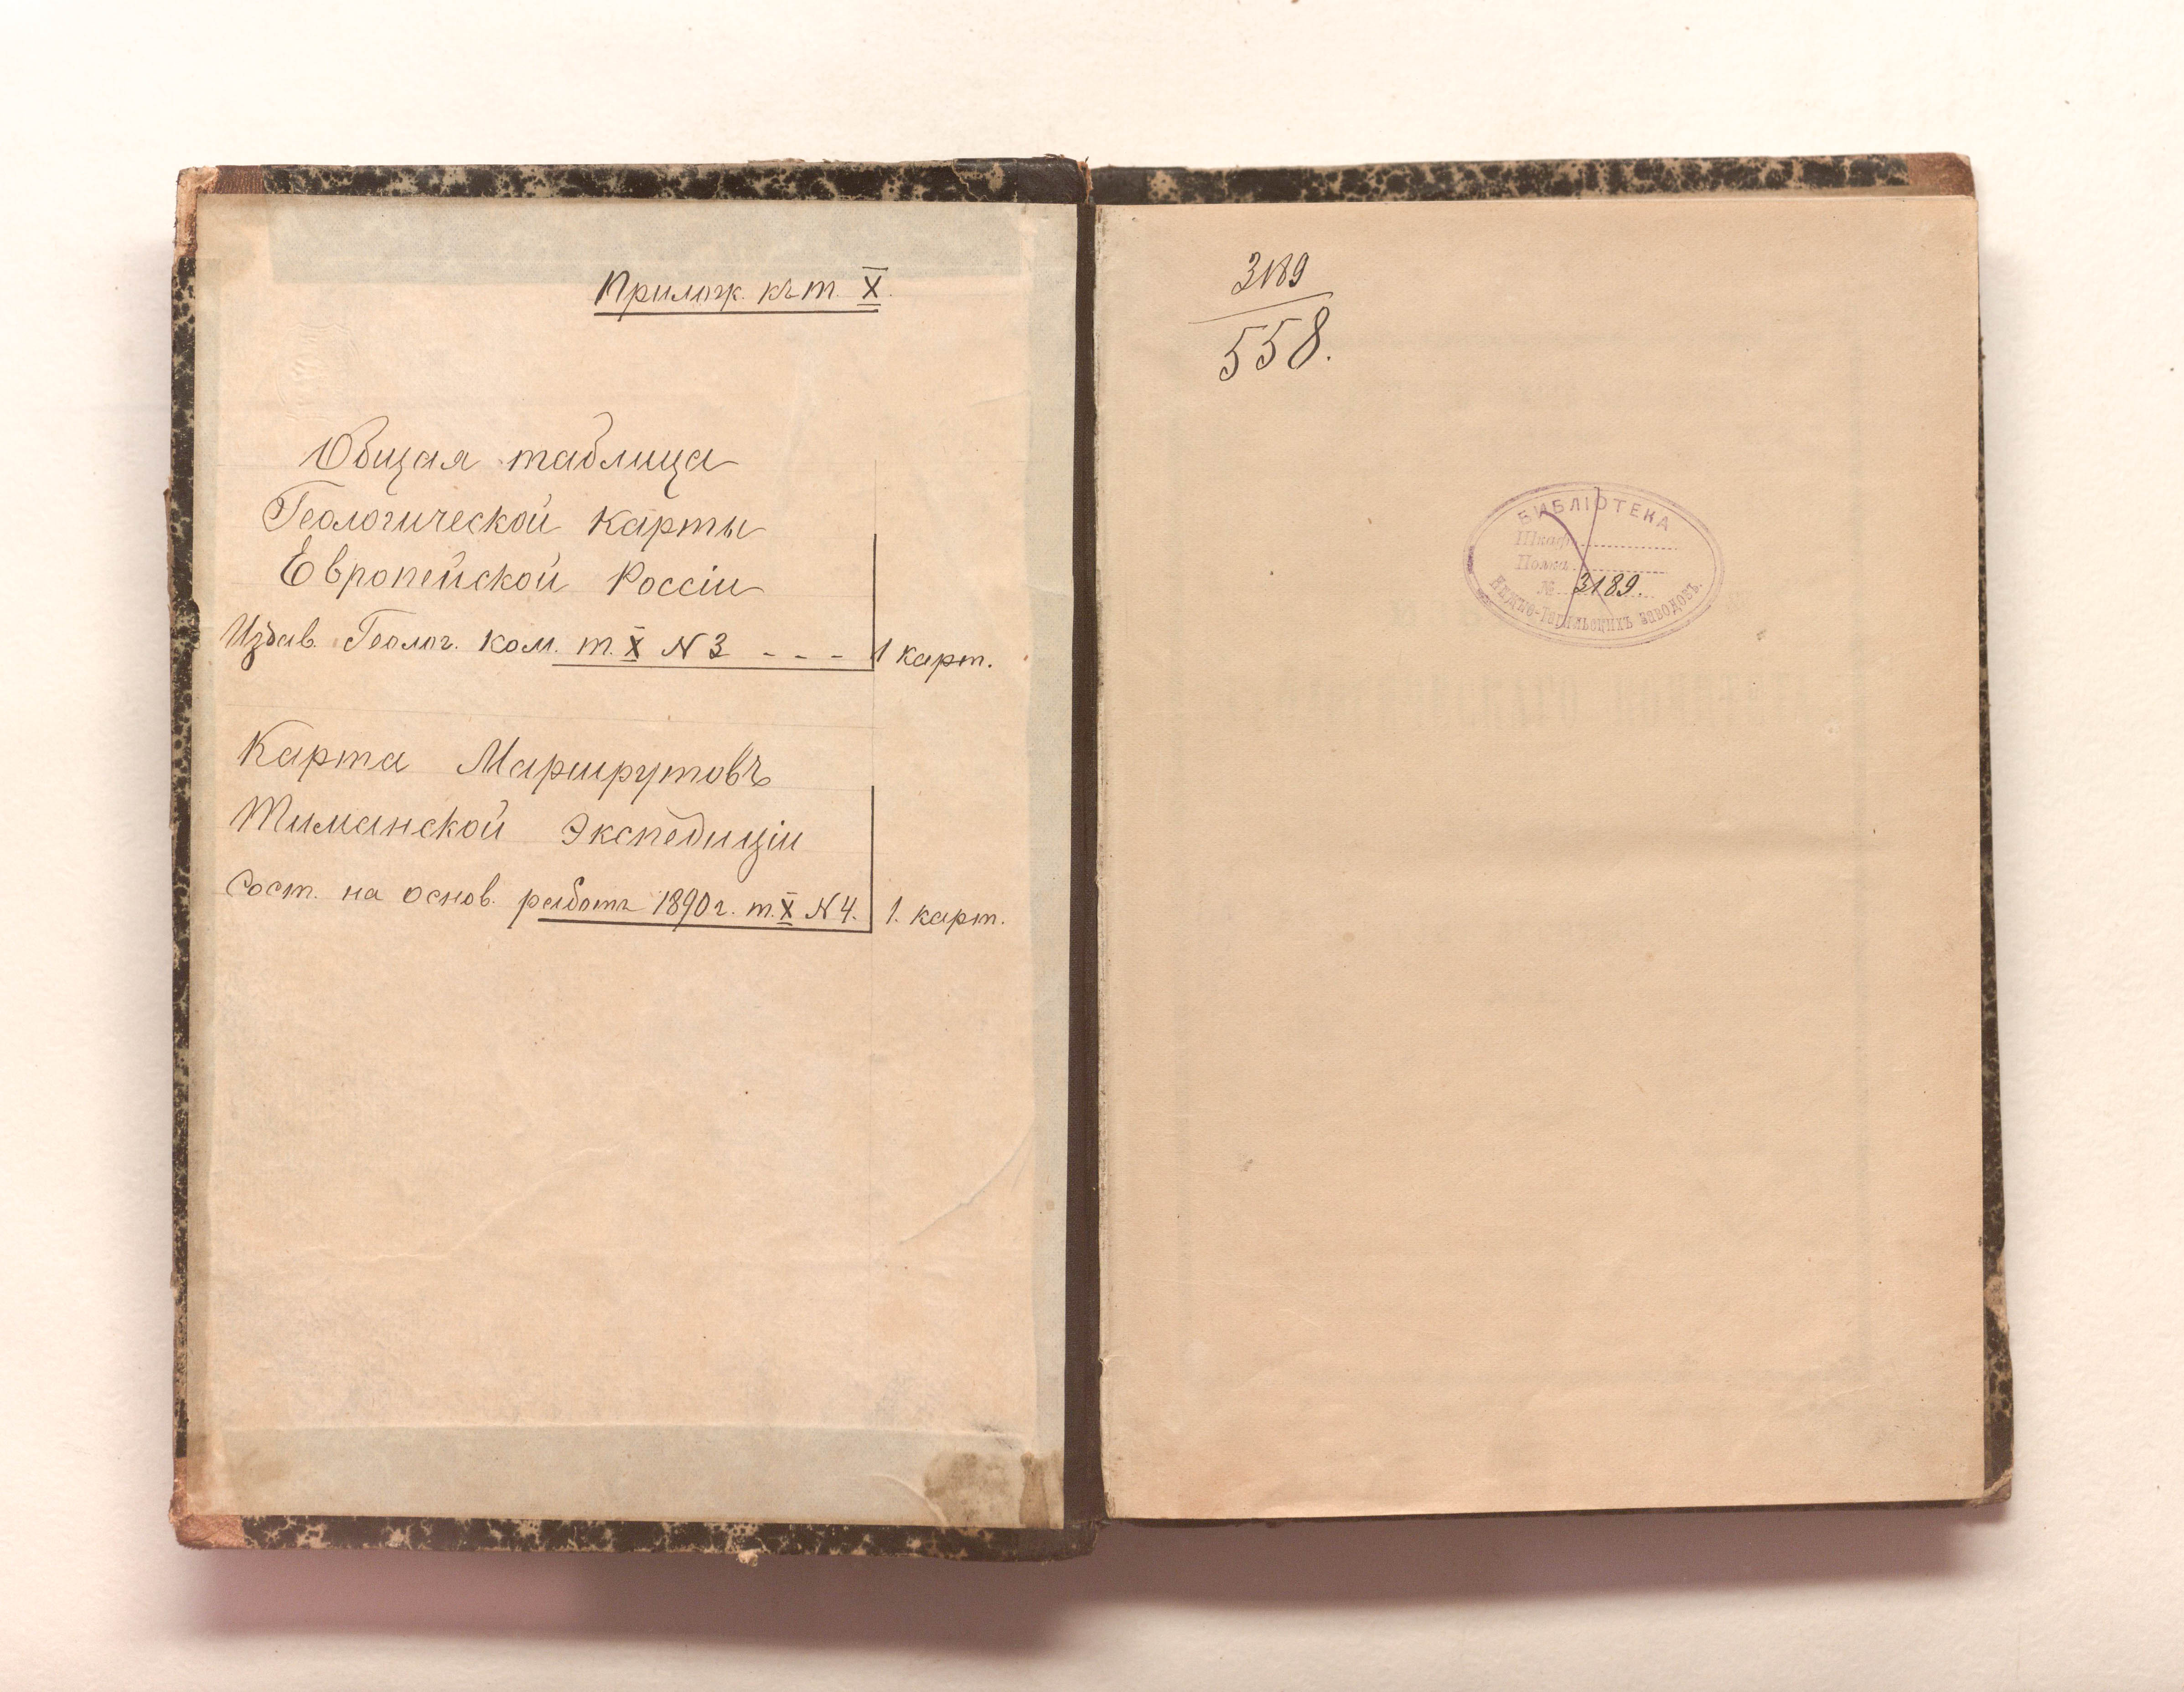 Прилож. къ т. X.
Общая таблица
Геологической карты
Европейской Россіи
Издав. Геолог. ком. т. X N 3 - - - 1 карт.
Карта Маршрутовъ
Тиманской Экспедиціи
Сост. на основ. работъ 1890 г. т. X N 4. 1. карт.
3189
558.
БИБЛІОТЕКА
Шкафъ
Полка
№ 3189.
Нижне-Тагильскихъ заводовъ.